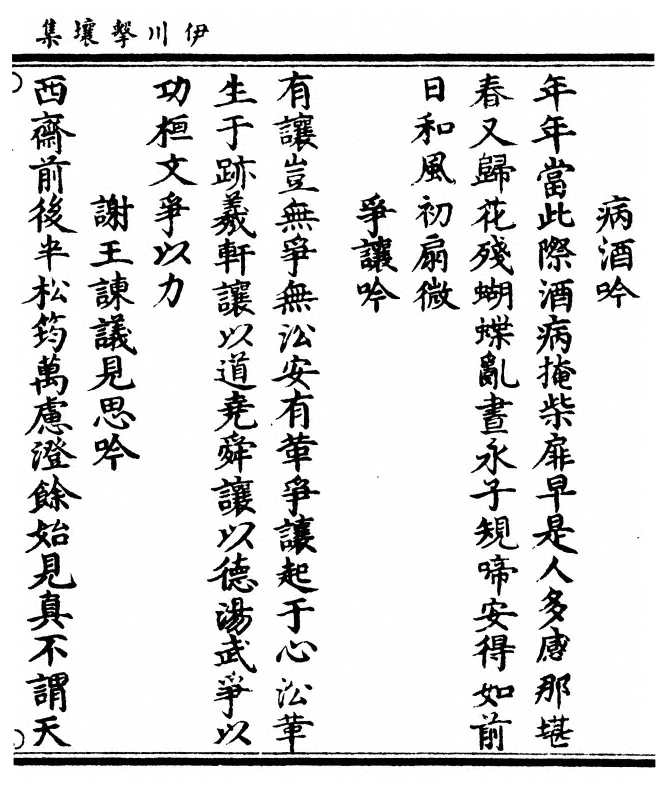 伊川擊壤集
病酒吟
年年當此際酒病掩柴扉早是人多感那堪
春又歸花殘蝴蝶亂晝永子規啼安得如前
日和風初扇微
爭讓吟
有讓豈無爭無㳂安有革爭讓起于心㳂革
生于跡羲軒讓以道堯舜讓以德湯武爭以
功桓文爭以力
謝王諫議見思吟
西齋前後半松筠萬慮澄餘始見真不謂天